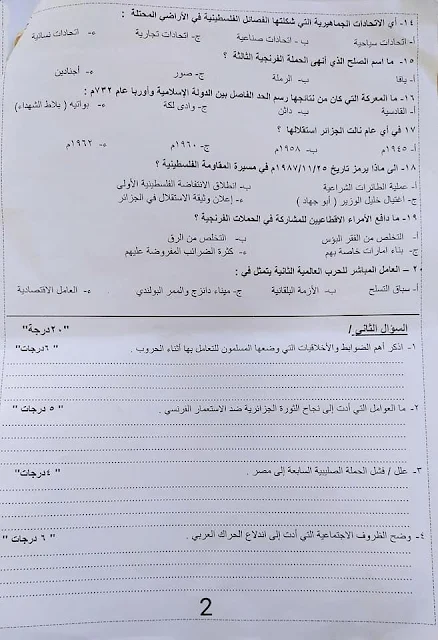 ١٤- أي الاتحادات الجماهيرية التي شكلتها الفصائل الفلسطينية في الأراضي المحتلة :
أ- اتحادات سياحية ب- اتحادات صناعية ج- اتحادات تجارية ء- اتحادات نسائية
١٥- ما اسم الصلح الذي أنهى الحملة الفرنجية الثالثة ؟
أ- يافا ب- الرملة ج- صور ء- أجنادين
١٦- ما المعركة التي كان من نتائجها رسم الحد الفاصل بين الدولة الإسلامية وأوربا عام ٧٣٢م :
أ- القادسية ب- داثن ج- وادى لكة ء- بواتيه ( بلاط الشهداء)
١٧ في أي عام نالت الجزائر استقلالها ؟
أ- ١٩٤٥م ب- ١٩٥٨م ج- ١٩٦٠م ء- ١٩٦٢م
١٨- الى ماذا يرمز تاريخ ١٩٨٧/١١/٢٥م في مسيرة المقاومة الفلسطينية ؟
أ- عملية الطائرات الشراعية ب- انطلاق الانتفاضة الفلسطينية الأولى
ج- اغتيال خليل الوزير ( أبو جهاد ) ء- إعلان وثيقة الاستقلال في الجزائر
١٩- ما دافع الأمراء الاقطاعيين للمشاركة في الحملات الفرنجية ؟
أ- التخلص من الفقر البؤس ب- التخلص من الرق
ج- بناء امارات خاصة بهم ء- كثرة الضرائب المفروضة عليهم
٢٠ – العامل المباشر للحرب العالمية الثانية يتمثل في :
أ- سباق التسلح ب- الأزمة البلقانية ج- ميناء دانزج والممر البولندي ء- العامل الاقتصادية
السؤال الثاني / "٢٠درجة"
١- اذكر أهم الضوابط والأخلاقيات التي وضعها المسلمون للتعامل بها أثناء الحروب . " ٦درجات"
٢- ما العوامل التي أدت إلى نجاح الثورة الجزائرية ضد الاستعمار الفرنسي . " ٥ درجات "
٣- علل / فشل الحملة الصليبية السابعة إلى مصر . " ٤درجات"
٤- وضح الظروف الاجتماعية التي أدت إلى اندلاع الحراك العربي . " ٦ درجات "
2